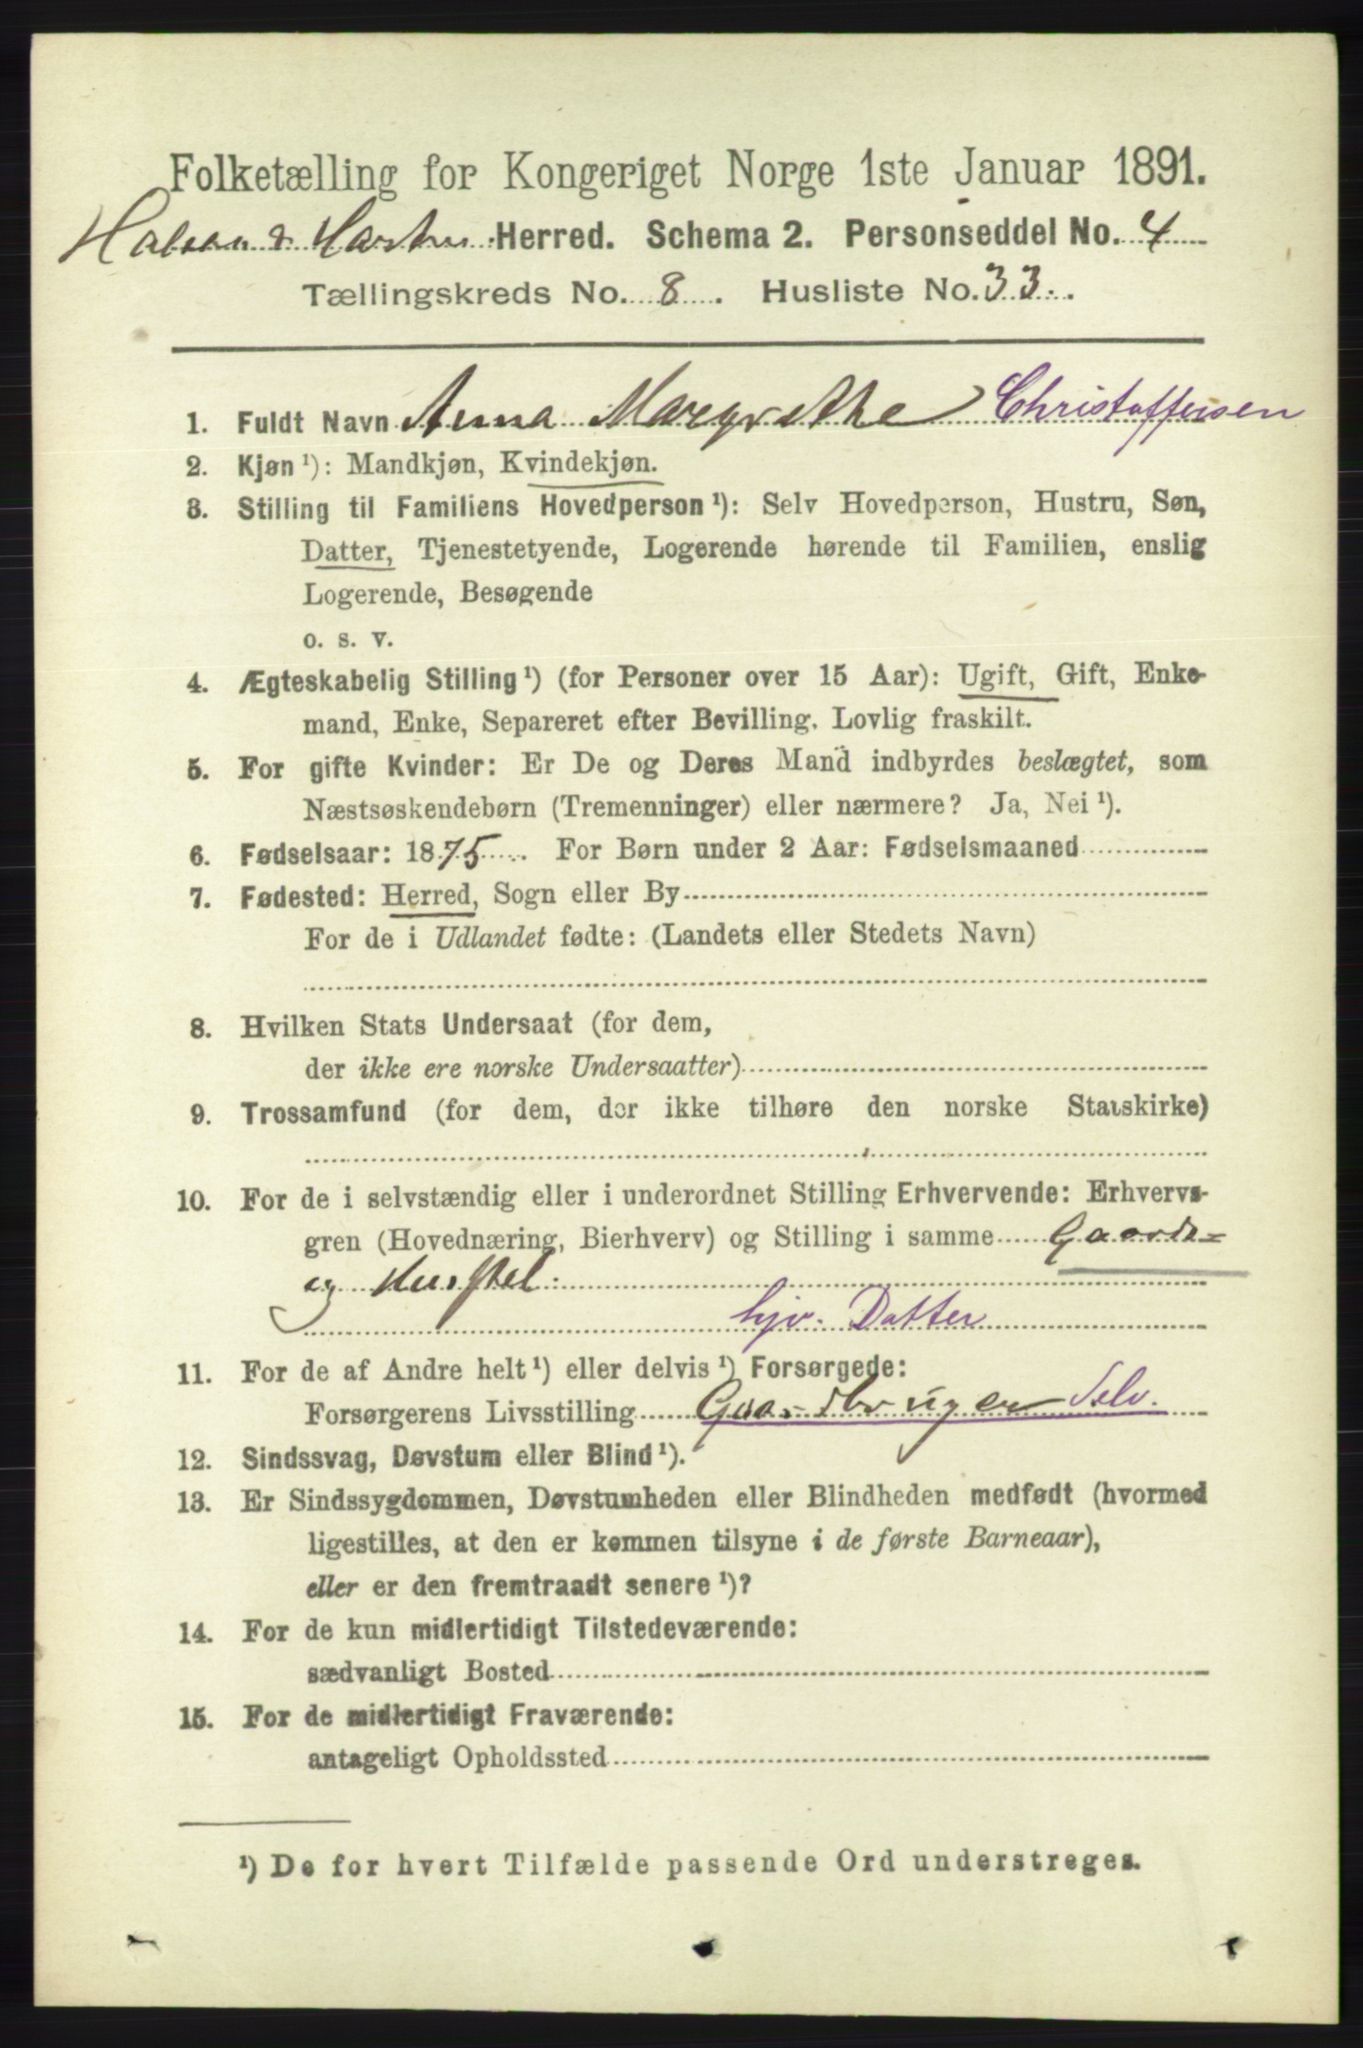 Folketælling for Kongeriget Norge 1ste Januar 1891.
Halsaa & Hartm. Herred. Schema 2. Personseddel No. 4
Tællingskreds No. 8. Husliste No. 33.
1. Fuldt Navn Anna Margrethe Christoffersen
2. Kjøn ¹): Mandkjøn, Kvindekjøn.
3. Stilling til Familiens Hovedperson ¹): Selv Hovedperson, Hustru, Søn,
Datter, Tjenestetyende, Logerende hørende til Familien, enslig
Logerende, Besøgende
o. s. v.
4. Ægteskabelig Stilling ¹) (for Personer over 15 Aar): Ugift, Gift, Enke-
mand, Enke, Separeret efter Bevilling. Lovlig fraskilt.
5. For gifte Kvinder: Er De og Deres Mand indbyrdes beslægtet, som
Næstsøskendebørn (Tremenninger) eller nærmere? Ja, Nei ¹).
6. Fødselsaar: 1875. For Børn under 2 Aar: Fødselsmaaned
7. Fødested: Herred, Sogn eller By
For de i Udlandet fødte: (Landets eller Stedets Navn)
8. Hvilken Stats Undersaat (for dem,
der ikke ere norske Undersaatter)
9. Trossamfund (for dem, der ikke tilhøre den norske Statskirke)
10. For de i selvstændig eller i underordnet Stilling Erhvervende: Erhvervs-
gren (Hovednæring, Bierhverv) og Stilling i samme Gaards-
og Husstel
hjv. Datter
11. For de af Andre helt ¹) eller delvis ¹) Forsørgede:
Forsørgerens Livsstilling Gaardbruger Selv.
12. Sindssvag, Døvstum eller Blind ¹).
13. Er Sindssygdommen, Døvstumheden eller Blindheden medfødt (hvormed
ligestilles, at den er kommen tilsyne i de første Barneaar),
eller er den fremtraadt senere ¹)?
14. For de kun midlertidigt Tilstedeværende:
sædvanligt Bosted
15. For de midlertidigt Fraværende:
antageligt Opholdssted
¹) De for hvert Tilfælde passende Ord understreges.